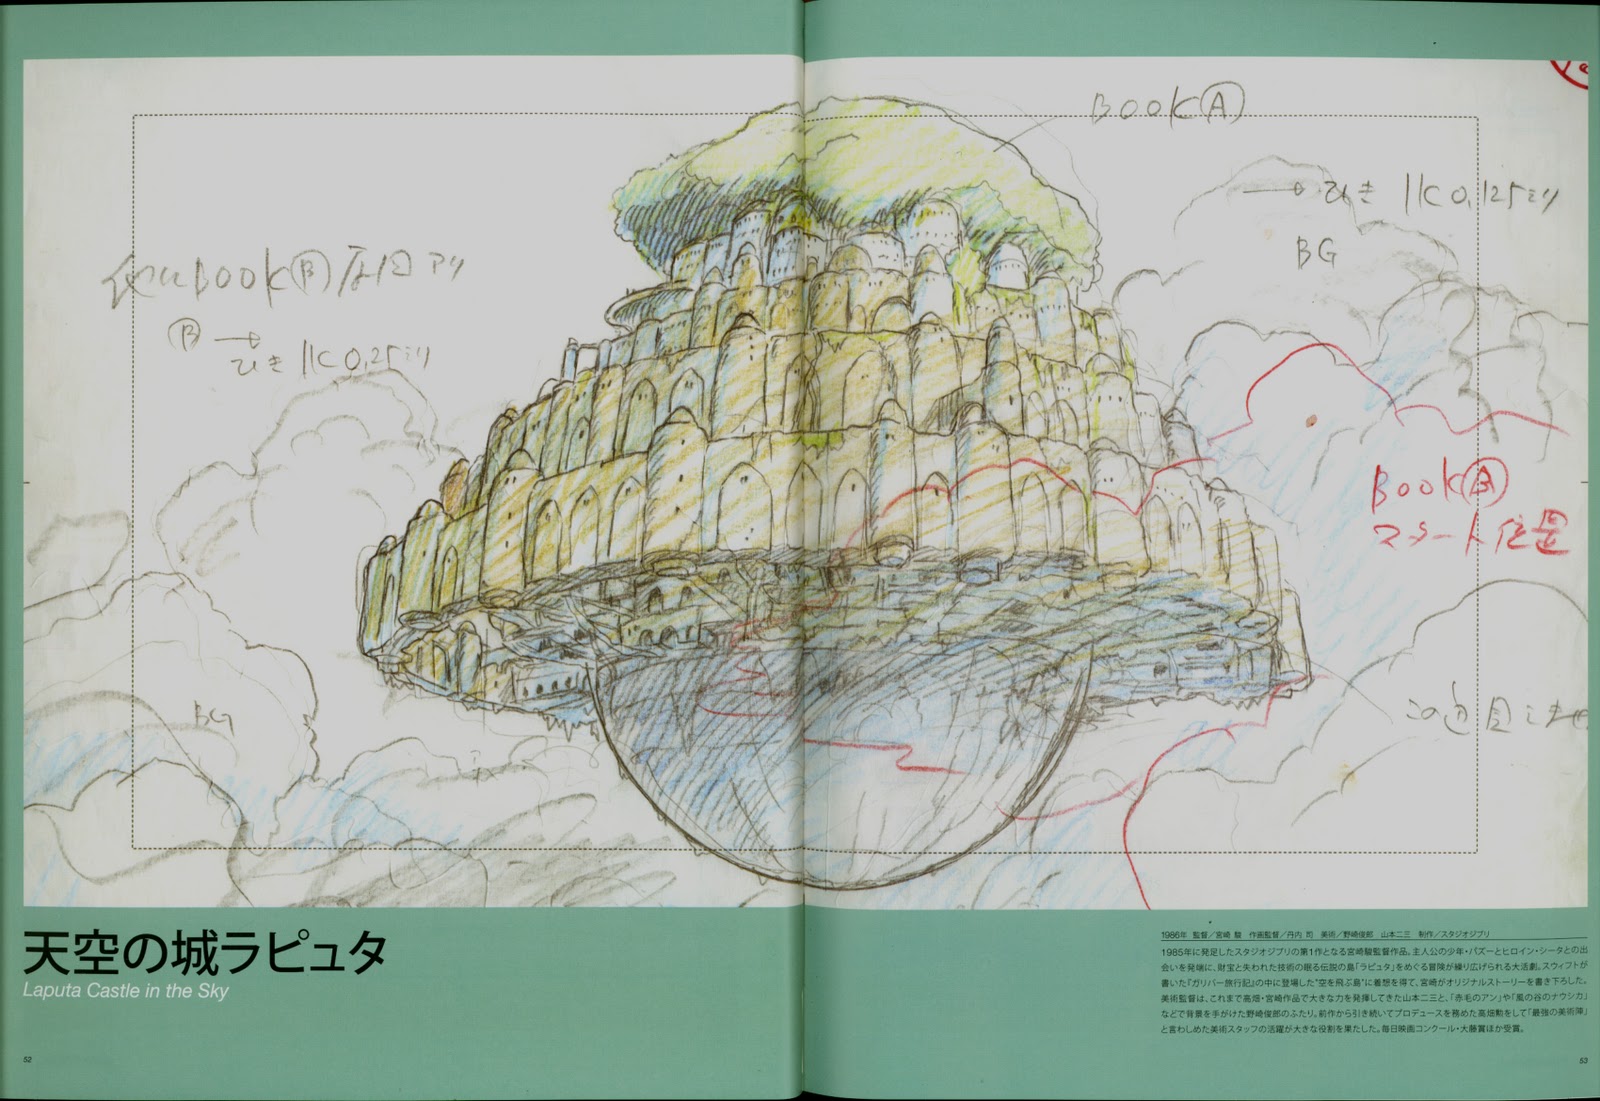 BOOK A
→ ひき 1K 0.125ミリ
BG
他にBOOK B 原図アリ
B → ひき 1K 0.25ミリ
BOOK B
スタート位置
BG
天空の城ラピュタ
Laputa Castle in the Sky
1986年 監督/宮崎 駿 作画監督/丹内 司 美術/野崎俊郎 山本二三 制作/スタジオジブリ
1985年に発足したスタジオジブリの第1作となる宮崎駿監督作品。主人公の少年・パズーとヒロイン・シータとの出
会いを発端に、財宝と失われた技術の眠る伝説の島「ラピュタ」をめぐる冒険が繰り広げられる大活劇。スウィフトが
書いた『ガリバー旅行記』の中に登場した"空を飛ぶ島"に着想を得て、宮崎がオリジナルストーリーを書き下ろした。
美術監督は、これまで高畑・宮崎作品で大きな力を発揮してきた山本二三と、「赤毛のアン」や「風の谷のナウシカ」
などで背景を手がけた野崎俊郎のふたり。前作から引き続いてプロデュースを務めた高畑勲をして「最強の美術陣」
と言わしめた美術スタッフの活躍が大きな役割を果たした。毎日映画コンクール・大藤賞ほか受賞。
52
53